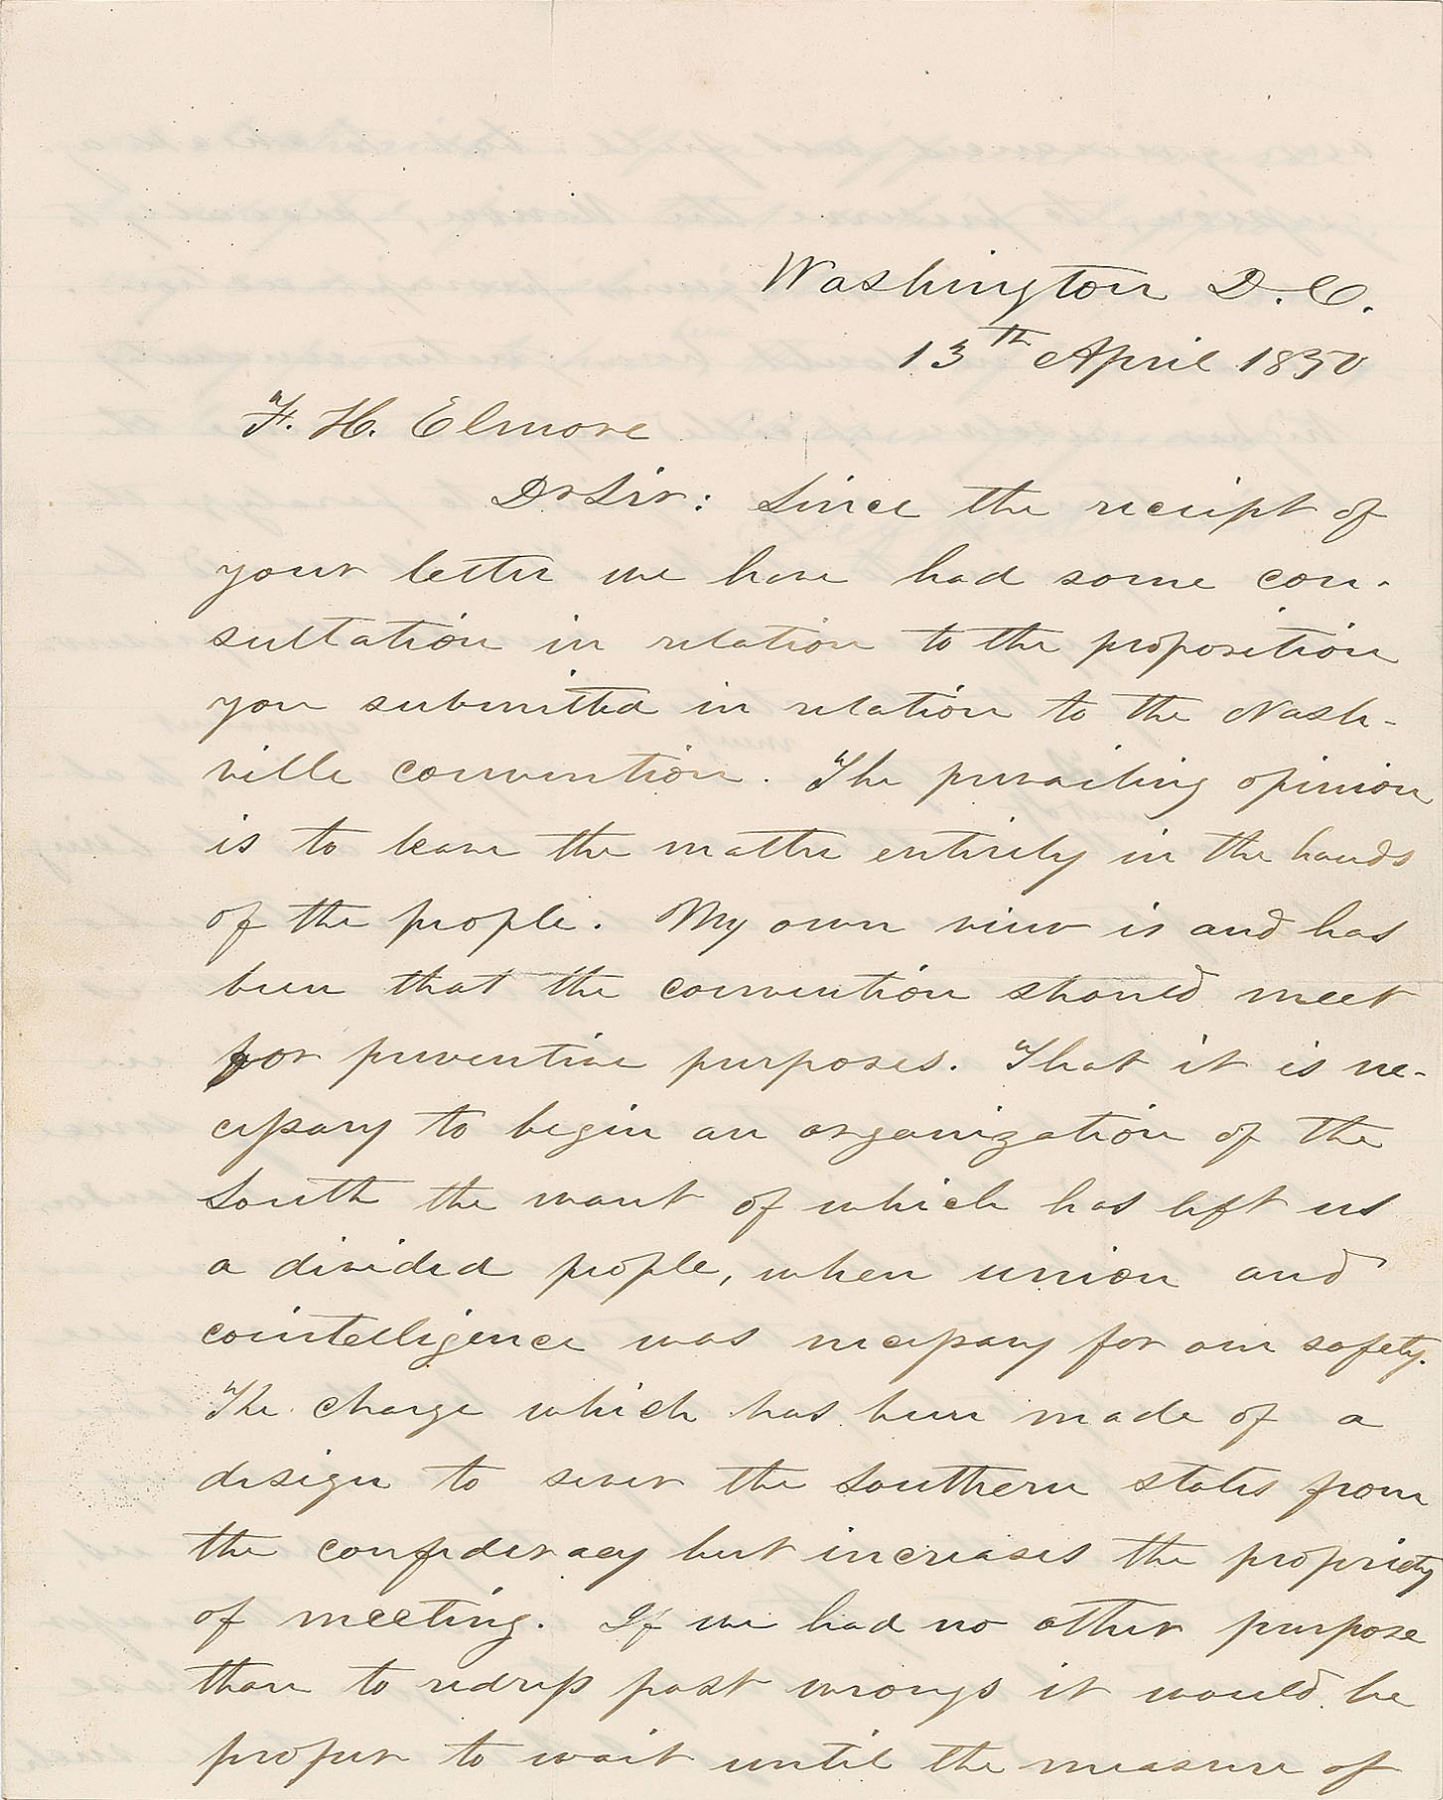 Washington D.C.
13th April 1850
F. H. Elmore
Dr Sir: Since the receipt of
your letter we have had some con-
sultation in relation to the proposition
you submitted in relation to the Nash-
ville convention. The prevailing opinion
is to leave the matter entirely in the hands
of the people. My own view is and has
been that the convention should meet
for preventive purposes. That it is ne-
cessary to begin an organization of the
South the want of which has left us
a divided people, when union and
cointelligence was necessary for our safety.
The charge which has been made of a
design to sever the Southern states from
the confederacy but increases the propriety
of meeting. If we had no other purpose
than to redress past wrongs it would be
proper to wait until the measure of